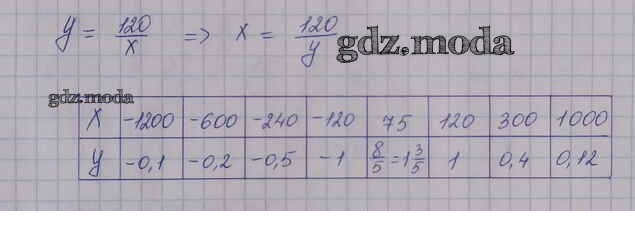 y = 120/x => x = 120/y gdz.moda
gdz.moda
x -1200 -600 -240 -120 75 120 300 1000
y -0,1 -0,2 -0,5 -1 8/5 = 1 3/5 1 0,4 0,12